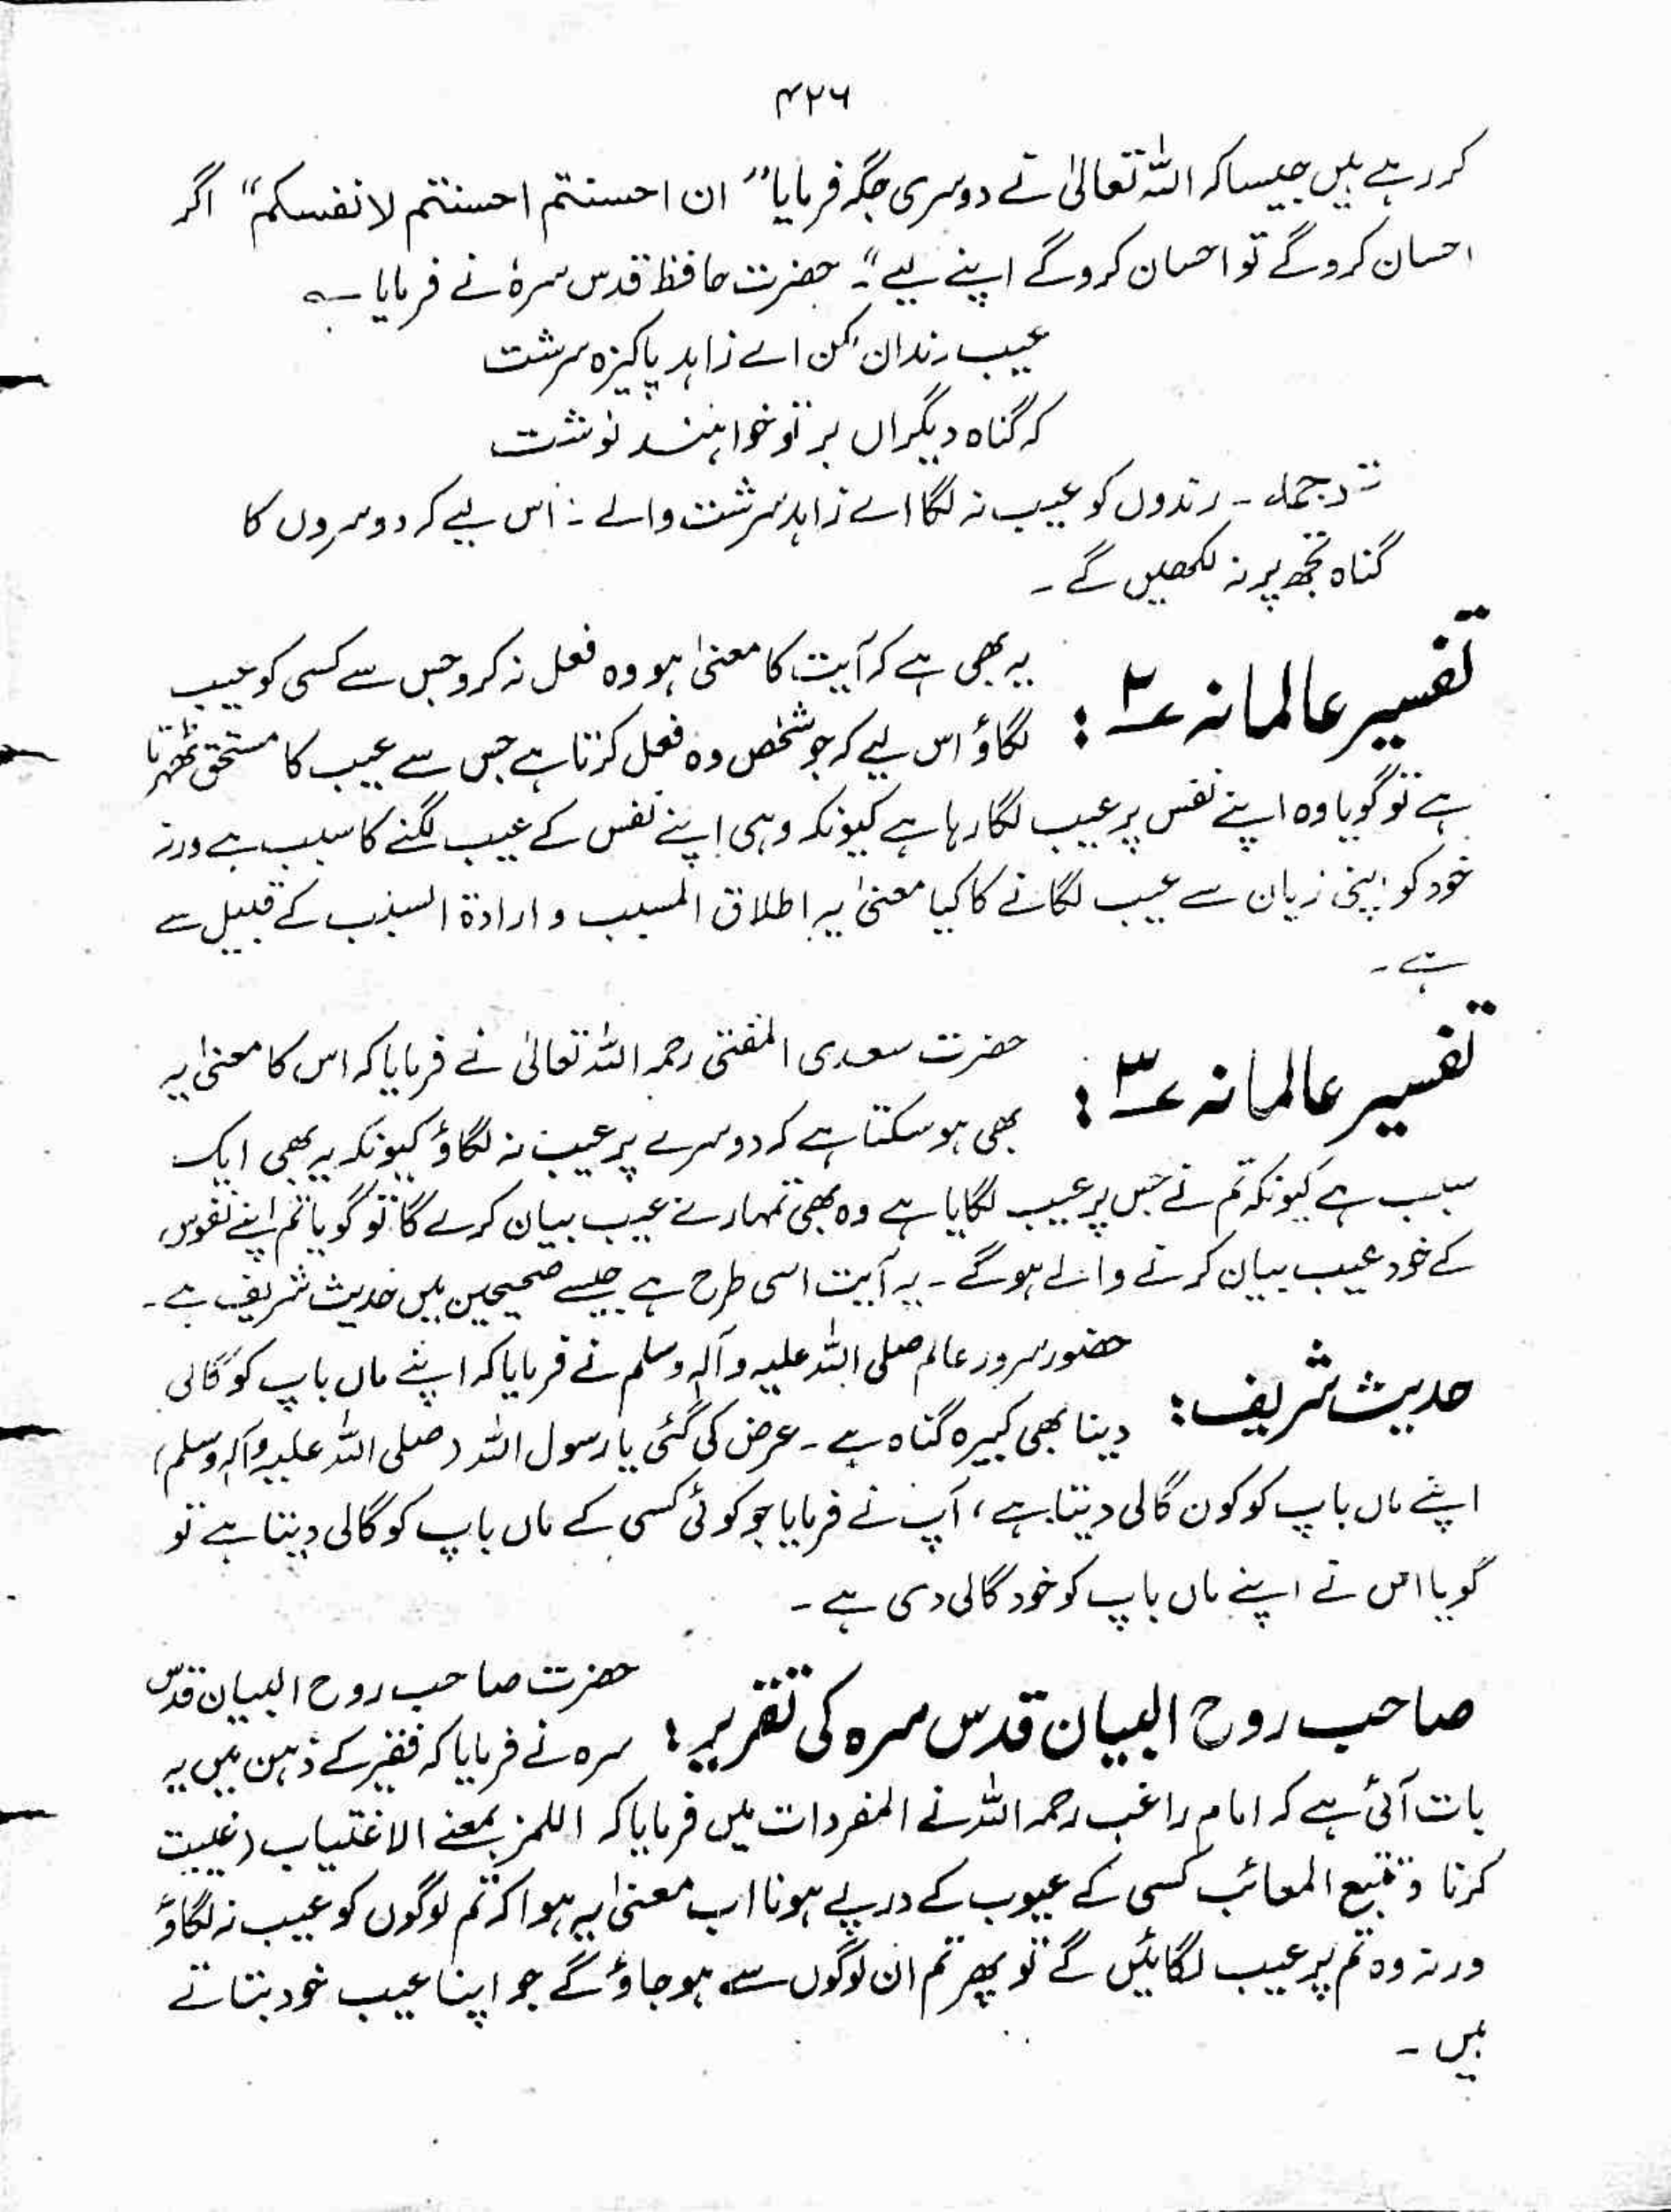 ۴۲۶
کر رہے ہیں جیسا کہ اللہ تعالیٰ نے دوسری جگہ فرمایا "ان احسنتم احسنتم لانفسکم" اگر
احسان کروگے تو احسان کروگے اپنے لیے"۔ حضرت حافظ قدس سرہٗ نے فرمایا ؎
عیب رندان مکن اے زاہد پاکیزہ سرشت
کہ گناہ دیگراں بر تو خواہند نوشت
ترجمہ۔ رندوں کو عیب نہ لگا اے زاہد سرشت والے ۔ اس لیے کہ دوسروں کا
گناہ تجھ پر نہ لکھیں گے ۔
تفسیر عالمانہ ۲ : یہ بھی ہے کہ آیت کا معنیٰ ہو وہ فعل نہ کرو جس سے کسی کو عیب
لگاؤ اس لیے کہ جو شخص وہ فعل کرتا ہے جس سے عیب کا مستحق ٹھہرتا
ہے تو گویا وہ اپنے نفس پر عیب لگا رہا ہے کیونکہ وہی اپنے نفس کے عیب لگنے کا سبب ہے ورنہ
خود کو اپنی زبان سے عیب لگانے کا کیا معنیٰ یہ اطلاق المسبب و ارادۃ السبب کے قبیل سے
ہے ۔
تفسیر عالمانہ ۳ : حضرت سعدی المفتی رحمہ اللہ تعالیٰ نے فرمایا کہ اس کا معنیٰ یہ
بھی ہو سکتا ہے کہ دوسرے پر عیب نہ لگاؤ کیونکہ یہ بھی ایک
سبب ہے کیونکہ تم نے جس پر عیب لگایا ہے وہ بھی تمہارے عیب بیان کرے گا تو گویا تم اپنے نفوس
کے خود عیب بیان کرنے والے ہوگے ۔ یہ آیت اسی طرح ہے جیسے صحیحین میں حدیث شریف ہے ۔
حدیث شریف : حضور سرور عالم صلی اللہ علیہ وآلہ وسلم نے فرمایا کہ اپنے ماں باپ کو گالی
دینا بھی کبیرہ گناہ ہے ۔ عرض کی گئی یا رسول اللہ (صلی اللہ علیہ وآلہ وسلم)
اپنے ماں باپ کو کون گالی دیتا ہے ، آپ نے فرمایا جو کوئی کسی کے ماں باپ کو گالی دیتا ہے تو
گویا اس نے اپنے ماں باپ کو خود گالی دی ہے ۔
صاحب روح البیان قدس سرہ کی تقریر : حضرت صاحب روح البیان قدس
سرہ نے فرمایا کہ فقیر کے ذہن میں یہ
بات آئی ہے کہ امام راغب رحمہ اللہ نے المفردات میں فرمایا کہ اللمز بمعنے الاغتیاب (غیبت
کرنا و تتبع المعائب کسی کے عیوب کے درپے ہونا اب معنیٰ یہ ہوا کہ تم لوگوں کو عیب نہ لگاؤ
ورنہ وہ تم پر عیب لگائیں گے تو پھر تم ان لوگوں سے ہو جاؤ گے جو اپنا عیب خود بتاتے
ہیں ۔